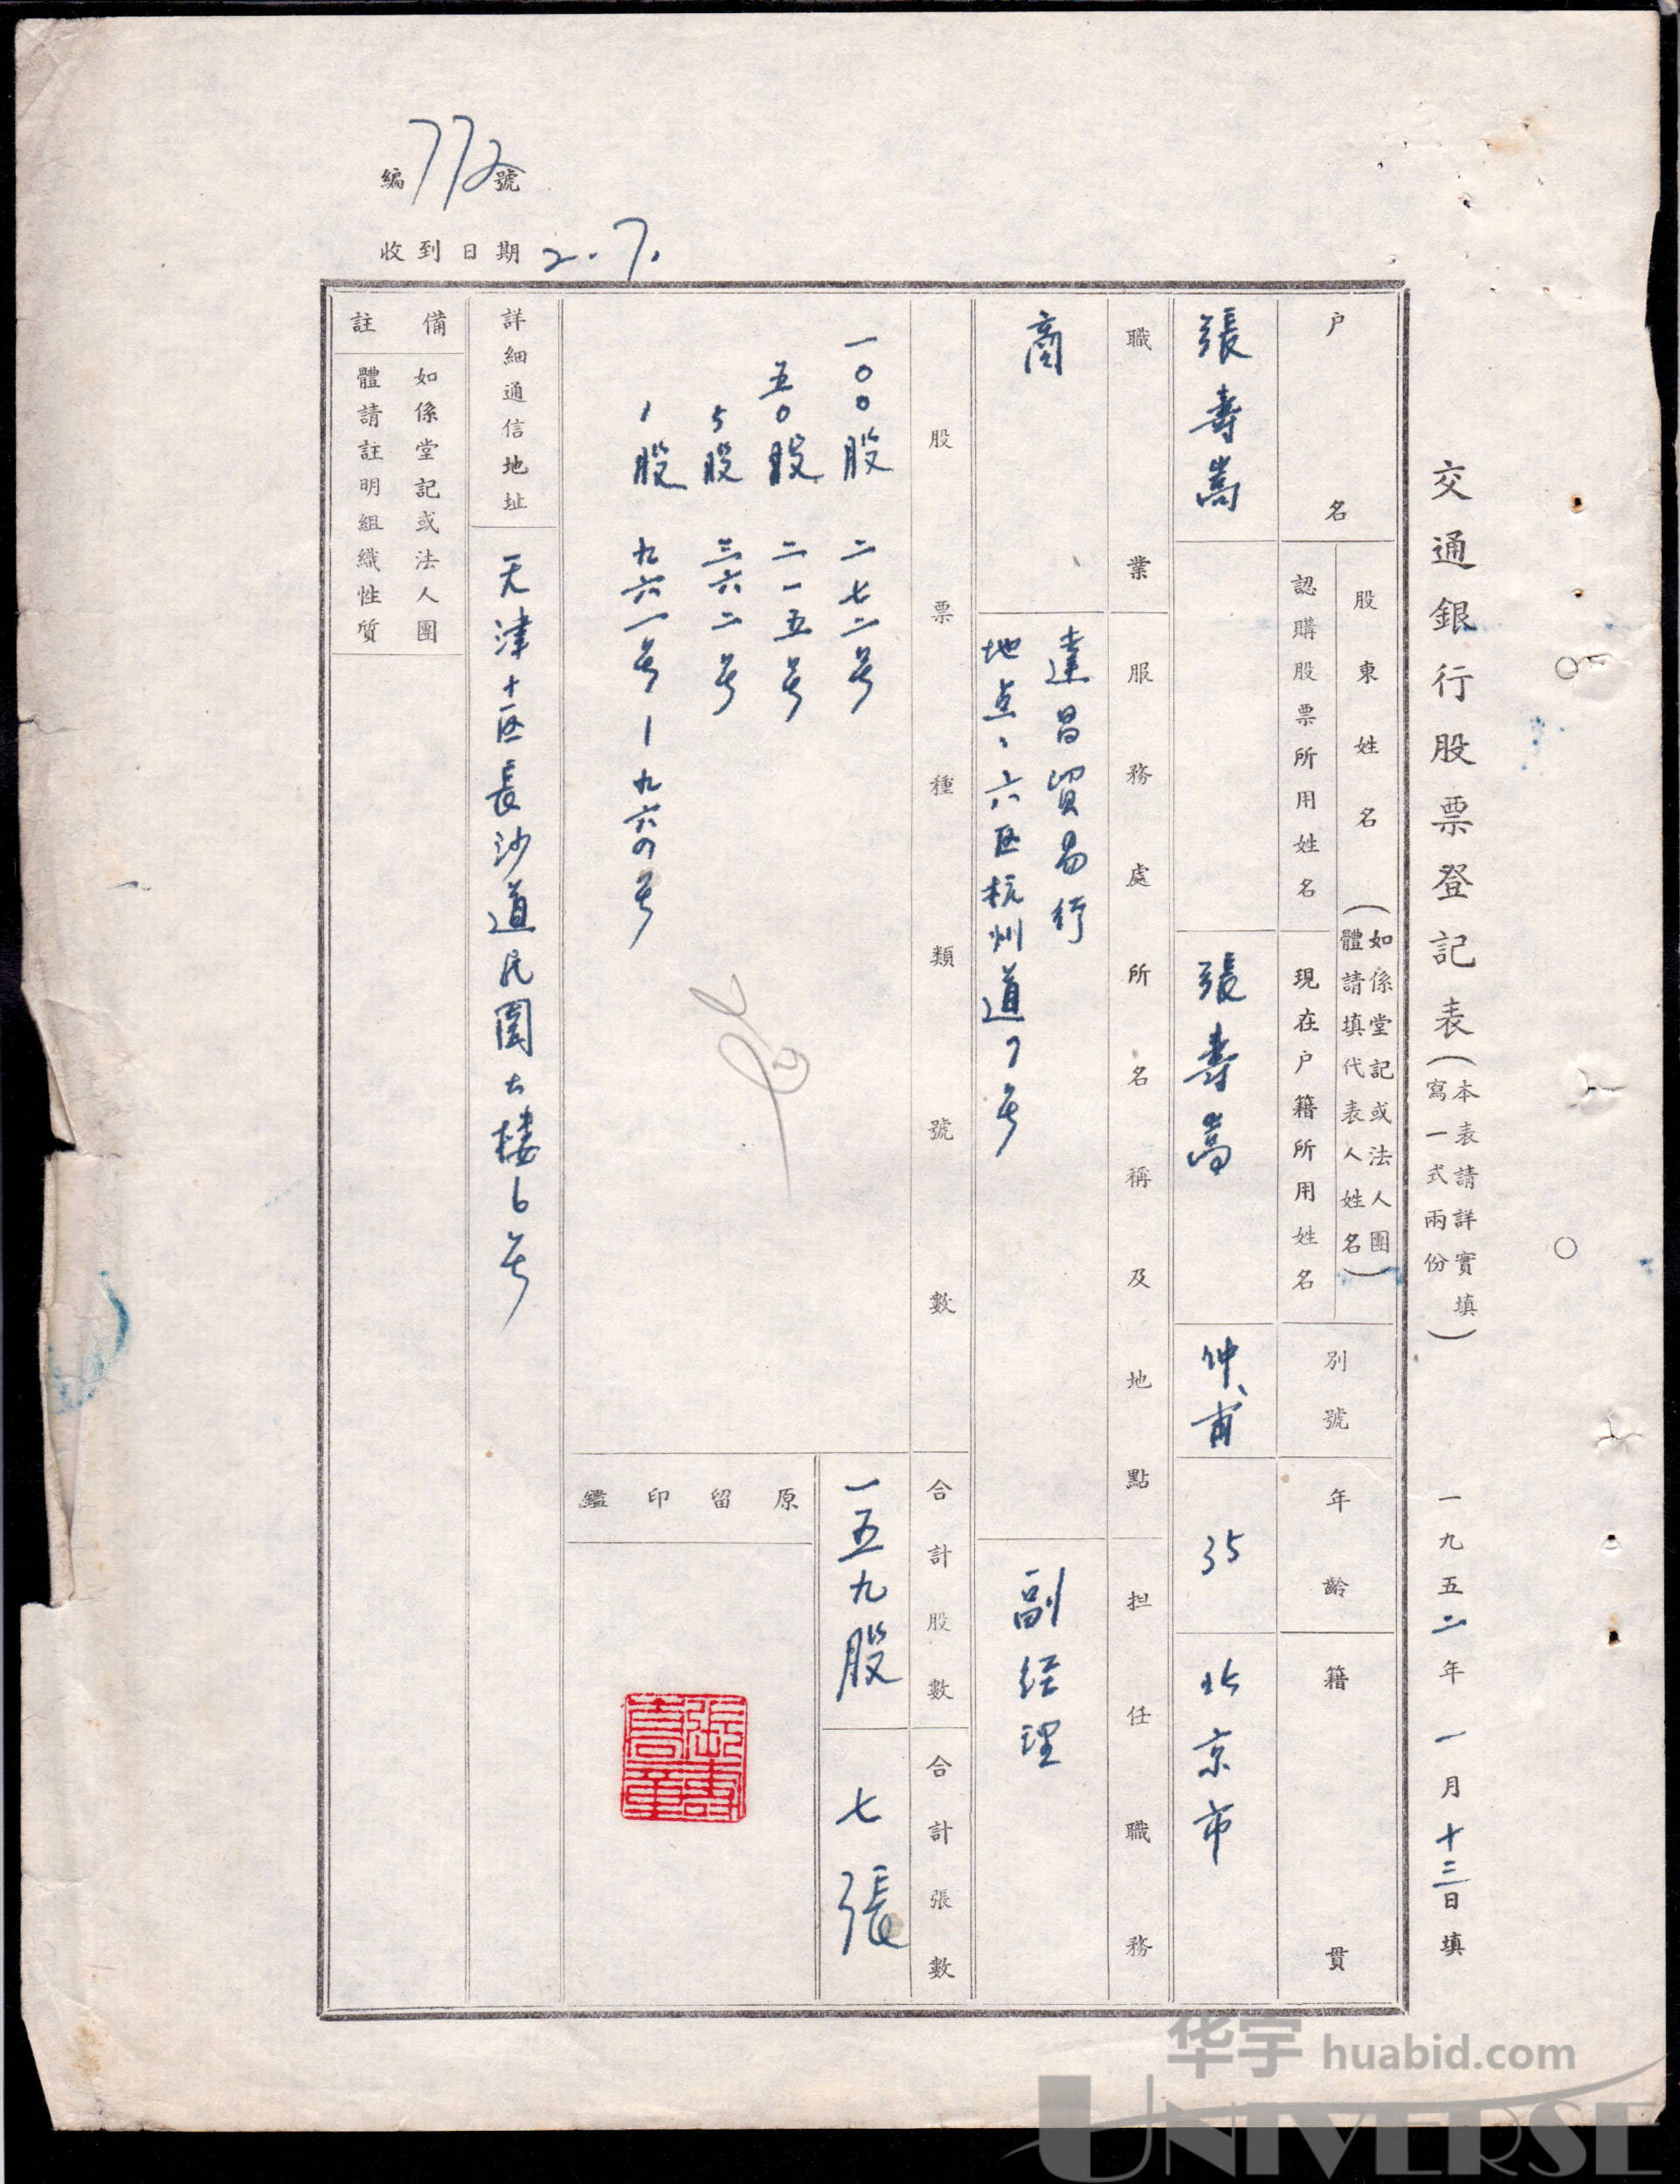 交通銀行股票登記表（本表請詳實填寫一式兩份）
一九五二年一月十三日填
編772號
收到日期 2.7.
户名
張壽嵩
股東姓名（如係堂記或法人團體請填代表人姓名）
認購股票所用姓名
現在户籍所用姓名
張壽嵩
別號
仲甫
年齡
35
籍貫
北京市
職業
商
服務處所名稱及地點
達昌貿易行
地点：六区杭州道7号
担任職務
副经理
股票種類號數
一〇〇股 二七二号
五〇股 二一五号
5股 三六二号
1股 九六一号—九六四号
合計股數
一五九股
合計張數
七張
原留印鑑
張壽嵩章
詳細通信地址
天津十区長沙道民園大楼6号
備註
如係堂記或法人團體請註明組織性質
华宇 huabid.com
UNIVERSE